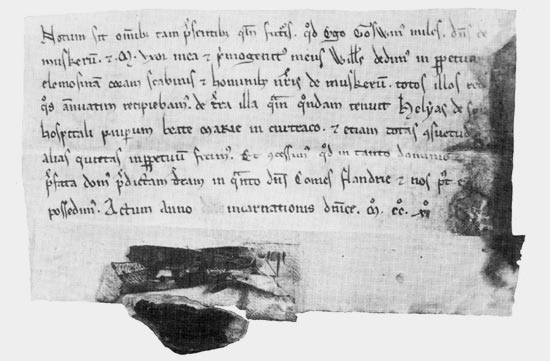 Notum sit omībꝫ tam p̄sentibꝫ qm̄ futʳis. qđ Ego Gosẃinꝰ miles. dn̄s de
muskerū. & M. Vxor mea & p̄mogenitꝰ meus Will̄s dedimꝰ in ꝑpetuā
elemosinā coram scabinis & hominibꝫ nr̄is de muskerū. totos illos
qͦs annuatim recipiebamꝰ. de tr̄a illa qm̄ qͦndam tenuit Helyas de
hospitali paupum beate marie in curtraco. & etiam totas ꝯsuetud
alias quietas inꝑpetuum fecimꝰ. Et ꝯcessimꝰ qđ in tanto dominio
p̄fata domꝰ p̄dictam tr̄am in qͣnto dn̄s Comes flandrie & nos
possedimꝰ. Actum anno incarnationis dn̄ice. M. CC. XI